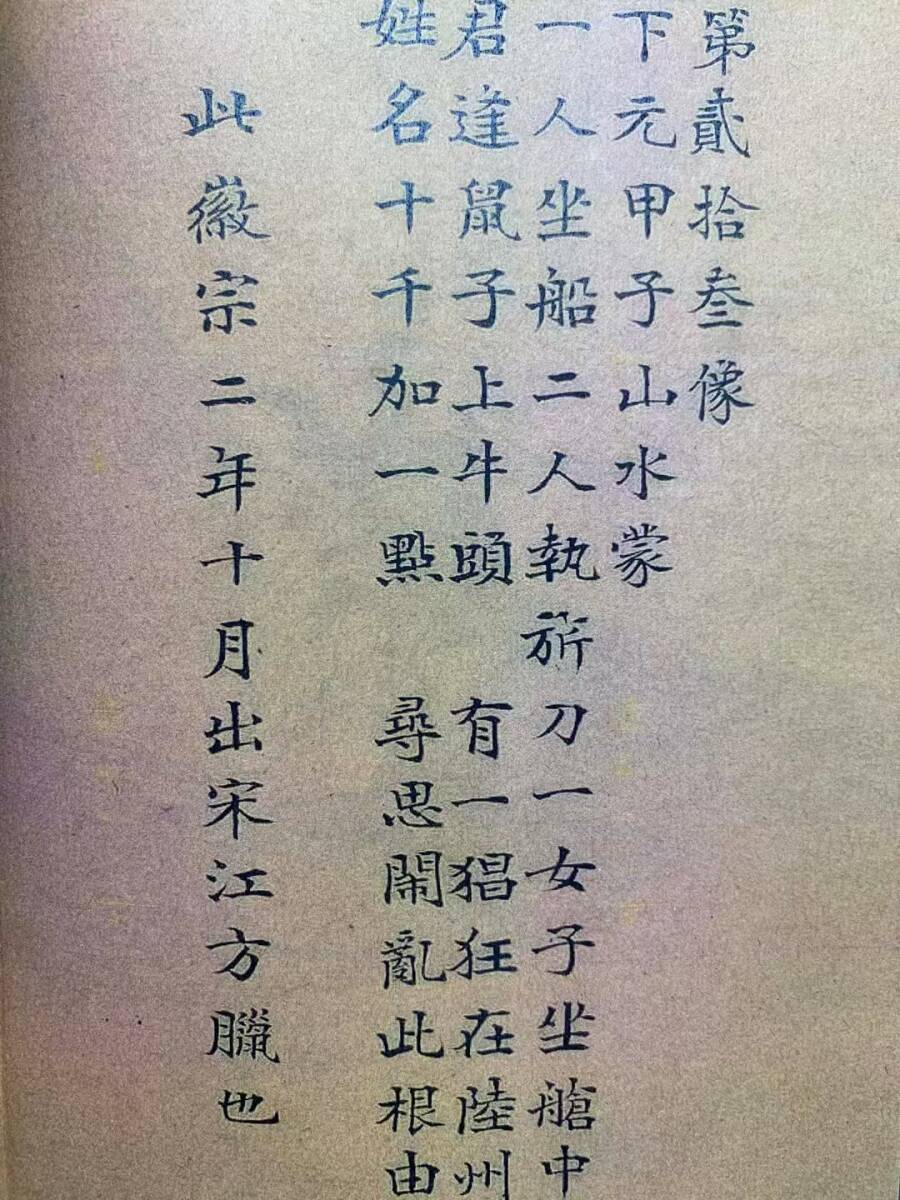 第貳拾叁像
下元甲子山水蒙
一人坐船二人執斾刀一女子坐艙中
君逢鼠子上牛頭　有一猖狂在陸州
姓名十千加一點　尋思鬧亂此根由
此徽宗二年十月出宋江方臘也